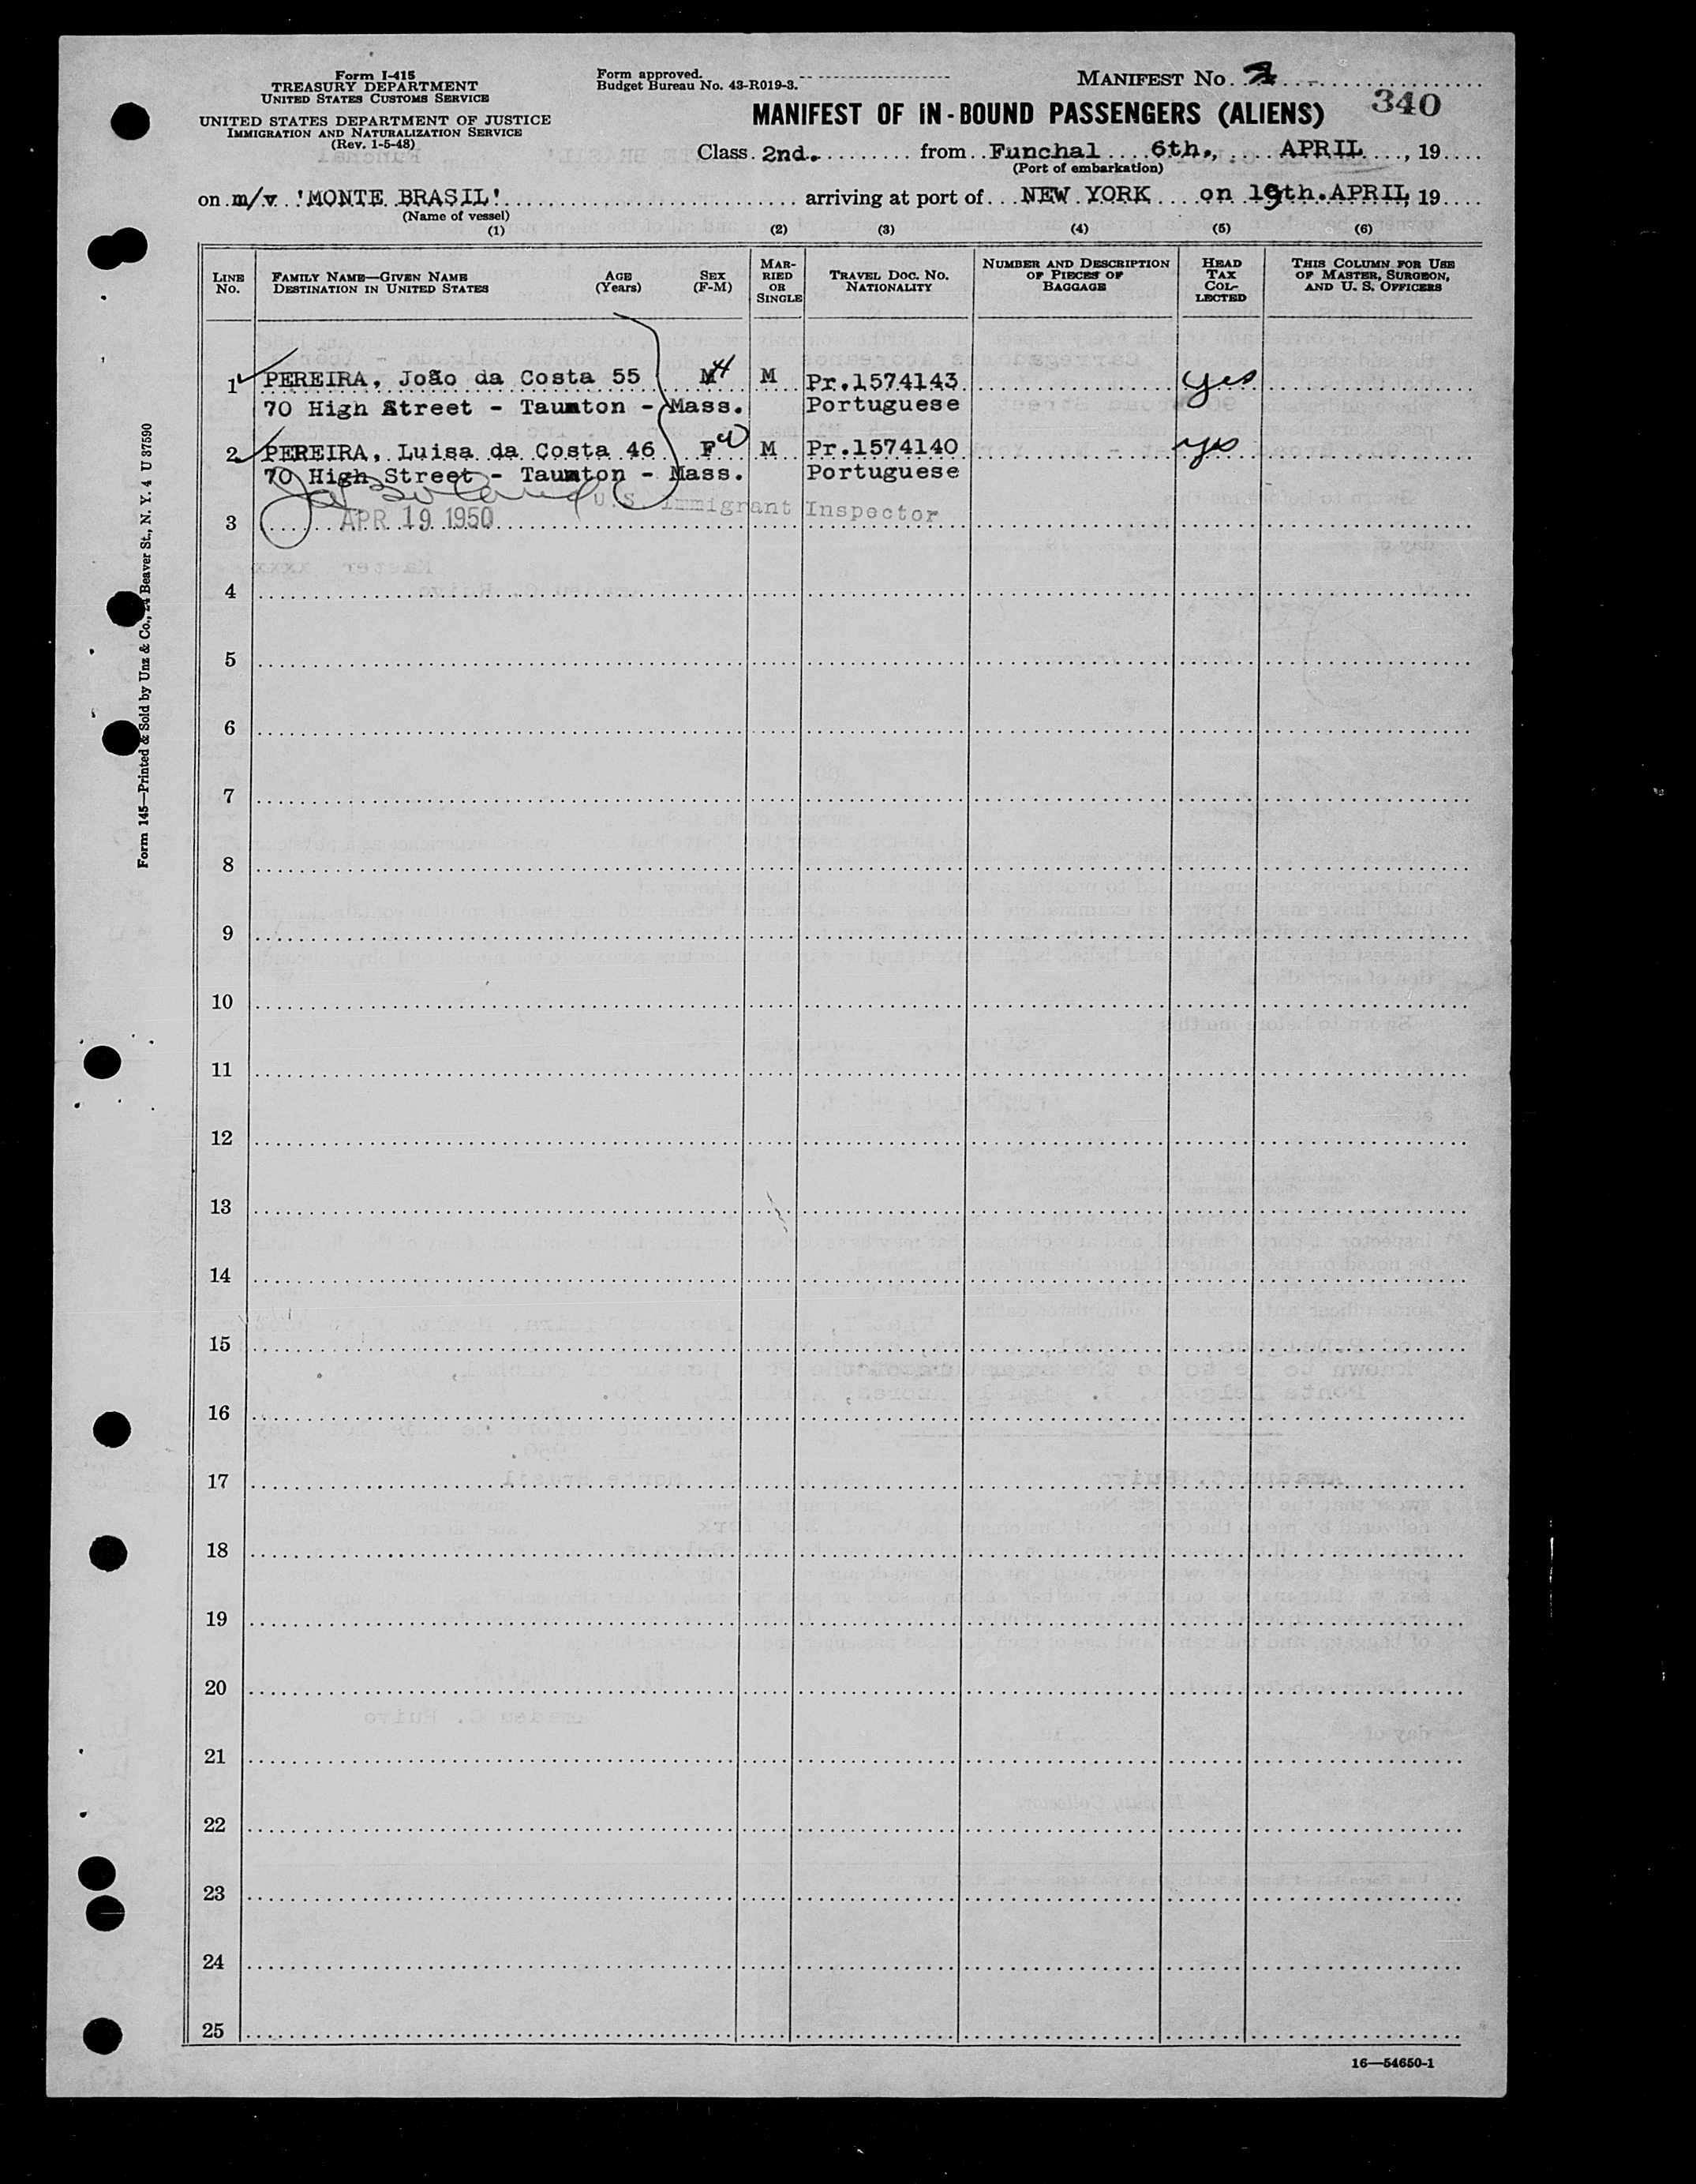 Form I-415
TREASURY DEPARTMENT
UNITED STATES CUSTOMS SERVICE
UNITED STATES DEPARTMENT OF JUSTICE
IMMIGRATION AND NATURALIZATION SERVICE
(Rev. 1-5-48)
Form approved.
Budget Bureau No. 43-R019-3.
MANIFEST NO.
340
MANIFEST OF IN-BOUND PASSENGERS (ALIENS)
Class 2nd. from Funchal 6th., APRIL, 19
(Port of embarkation)
on m/v 'MONTE BRASIL' arriving at port of NEW YORK on 19th. APRIL, 19
(Name of vessel)
(1) (2) (3) (4) (5) (6)
LINE NO.
FAMILY NAME—GIVEN NAME
DESTINATION IN UNITED STATES
AGE (Years)
SEX (F-M)
MARRIED OR SINGLE
TRAVEL DOC. NO.
NATIONALITY
NUMBER AND DESCRIPTION OF PIECES OF BAGGAGE
HEAD TAX COLLECTED
THIS COLUMN FOR USE OF MASTER, SURGEON, AND U. S. OFFICERS
1 PEREIRA, João da Costa 55 M M Pr.1574143 yes
70 High Street - Taunton - Mass. Portuguese
2 PEREIRA, Luisa da Costa 46 F M Pr.1574140 yes
70 High Street - Taunton - Mass. Portuguese
U.S. Immigrant Inspector
3 APR 19 1950
4
5
6
7
8
9
10
11
12
13
14
15
16
17
18
19
20
21
22
23
24
25
16—54650-1
Form 145—Printed & Sold by Unz & Co., 24 Beaver St., N. Y. 4 U 37590